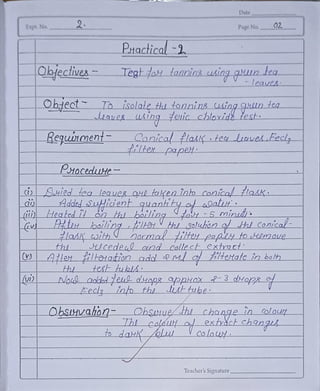 Date
Expt. No. 2.
Page No. 02
Practical - 2
Objectives - Test for tannins using green tea
- leaves.
Object - To isolate the tannins using green tea
leaves using ferric chloride test.
Requirment - Conical flask, tea leaves, Fecl3
filter paper.
Procedure -
(i) Dried tea leaves are taken into conical flask.
(ii) Added sufficient quantity of water.
(iii) Heated it on the boiling for - 5 minute.
(iv) After boiling, filter the solution of the conical-
flask with normal filter paper to remove
the and collect extract.
(v) After filteration add 2 ml of filterate in both
the test tubes.
(vi) Now added few drops approx 2-3 drops of
Fecl3 into the test tube.
Observation - Observe the change in colour
The colour of extract changes
to dark colour.
Teacher's Signature